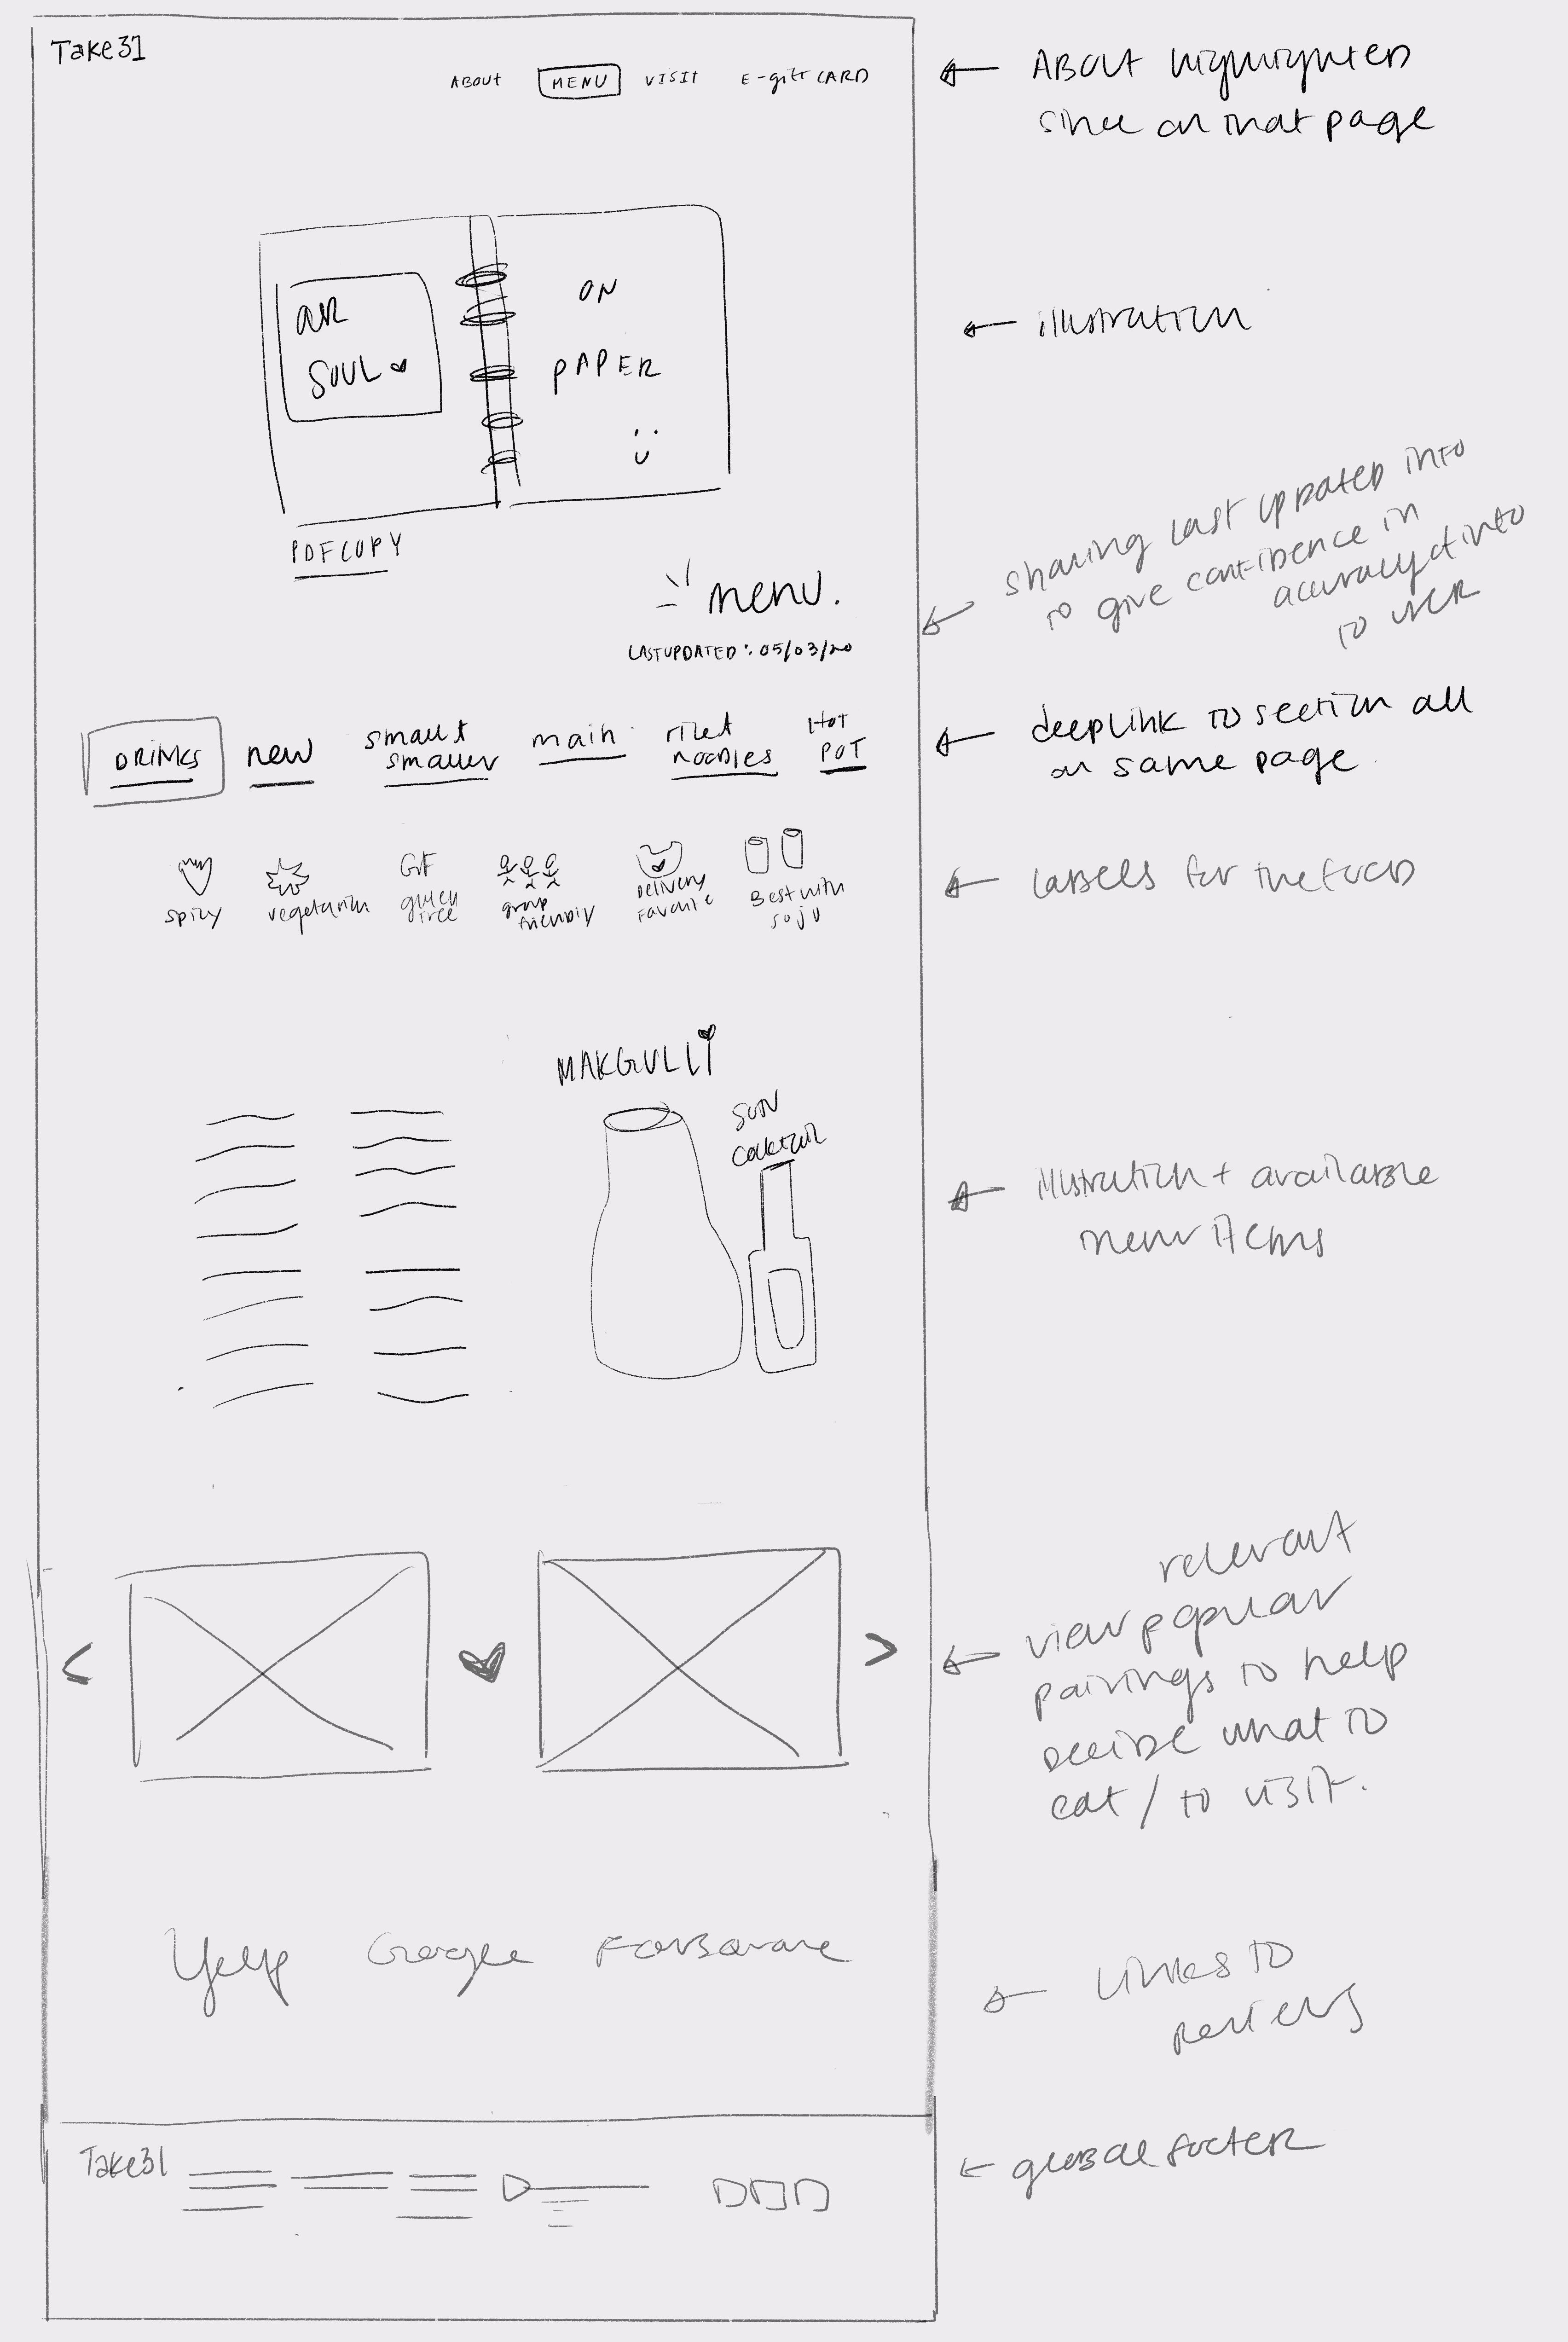 Take31
ABOUT MENU VISIT E-gift CARD
ABOUT highlighted
since on that page
OUR
SOUL
ON
PAPER
illustration
PDF COPY
menu.
LAST UPDATED: 05/03/20
sharing last updated info
to give confidence in
accuracy of info
to user
DRINKS new small & smaller main rice & noodles HOT POT
deeplink to section all
on same page.
spicy
vegetarian
GF
gluten
free
group
friendly
Delivery
Favorite
Best with
soju
labels for the food
MAKGULLI
SOJU
cocktail
illustration + available
menu items
relevant
view popular
pairings to help
decide what to
eat / to visit.
Yelp Google Foursquare
Links to
reviews
Take31
global footer